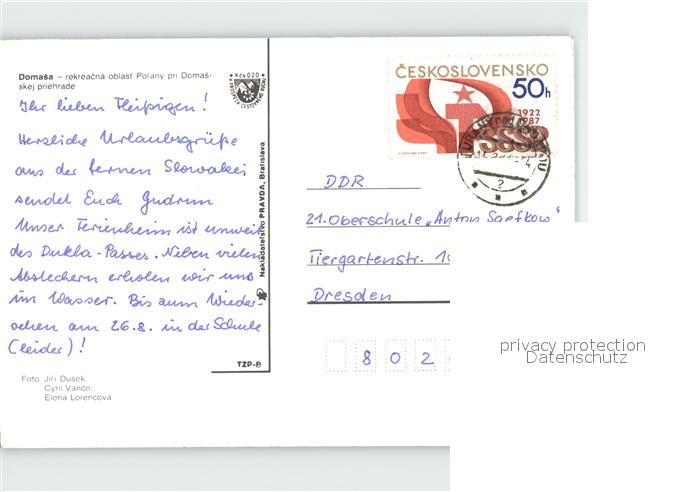 Domaša – rekreačná oblasť Poľany pri Domaš-
skej priehrade
Kčs 0,20
Ihr lieben Fleißigen!
Herzliche Urlaubsgrüße
aus der fernen Slowakei
sendet Euch Gudrun
Unser Ferienheim ist unweit
des Dukla-Passes. Neben vielen
Abstechern erholen wir uns
im Wasser. Bis zum Wieder-
sehen am 26.8. in der Schule
(leider)!
Foto Jiří Dušek,
Cyril Vančo,
Elena Lorencová
Nakladateľstvo PRAVDA, Bratislava
TZP-B
ČESKOSLOVENSKO
50h
1922
1987
SSSR
2
DDR
21. Oberschule „Anton Saefkow"
Tiergartenstr.
Dresden
8 0 2
privacy protection
Datenschutz